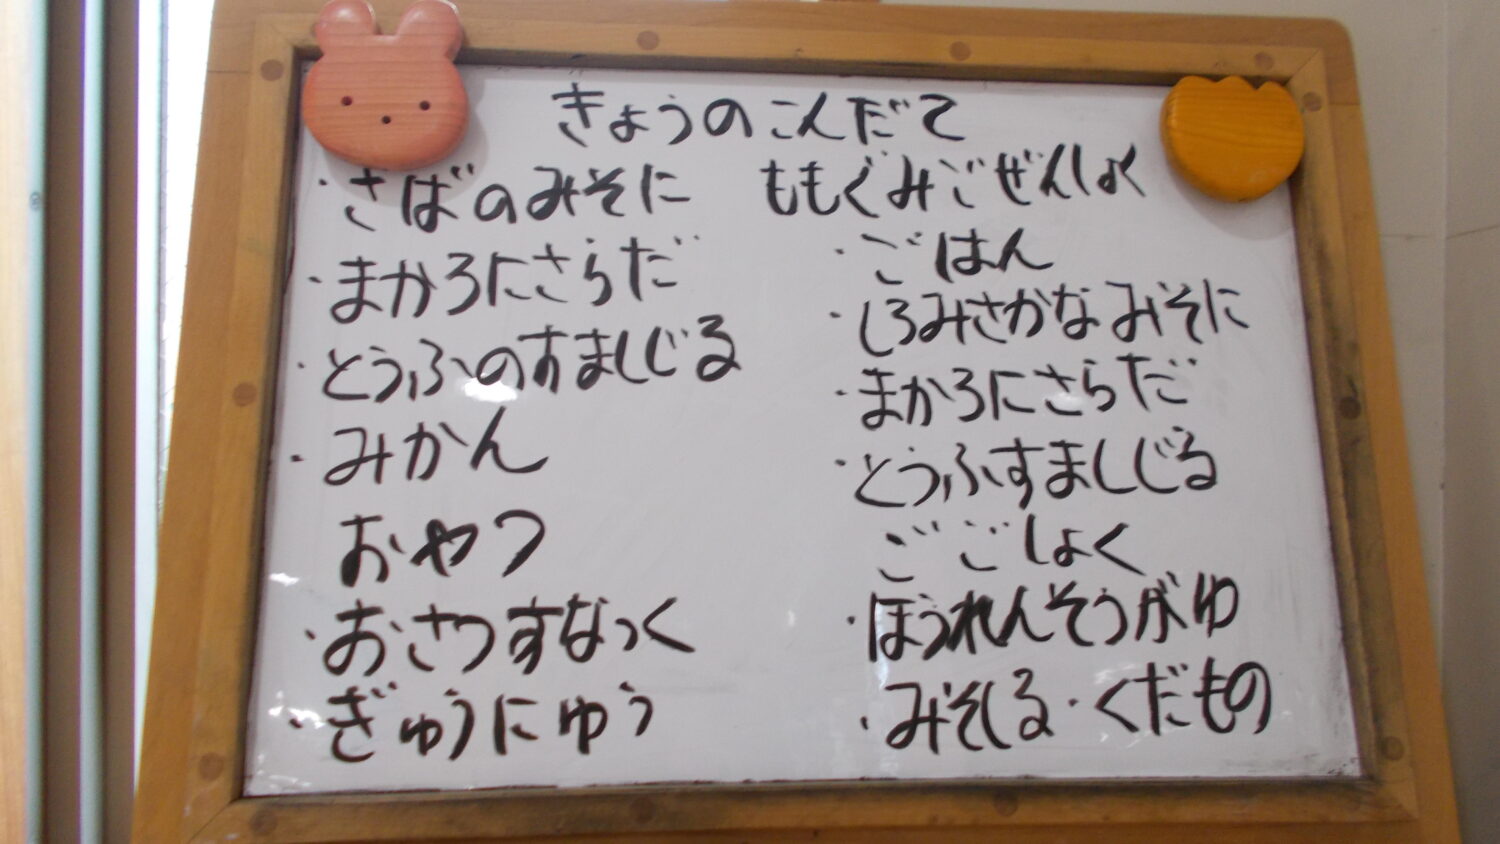 きょうのこんだて
・さばのみそに
・まかろにさらだ
・とうふのすましじる
・みかん
おやつ
・おさつすなっく
・ぎゅうにゅう
ももぐみごぜんしょく
・ごはん
・しろみさかなみそに
・まかろにさらだ
・とうふすましじる
ごごしょく
・ほうれんそうがゆ
・みそしる・くだもの